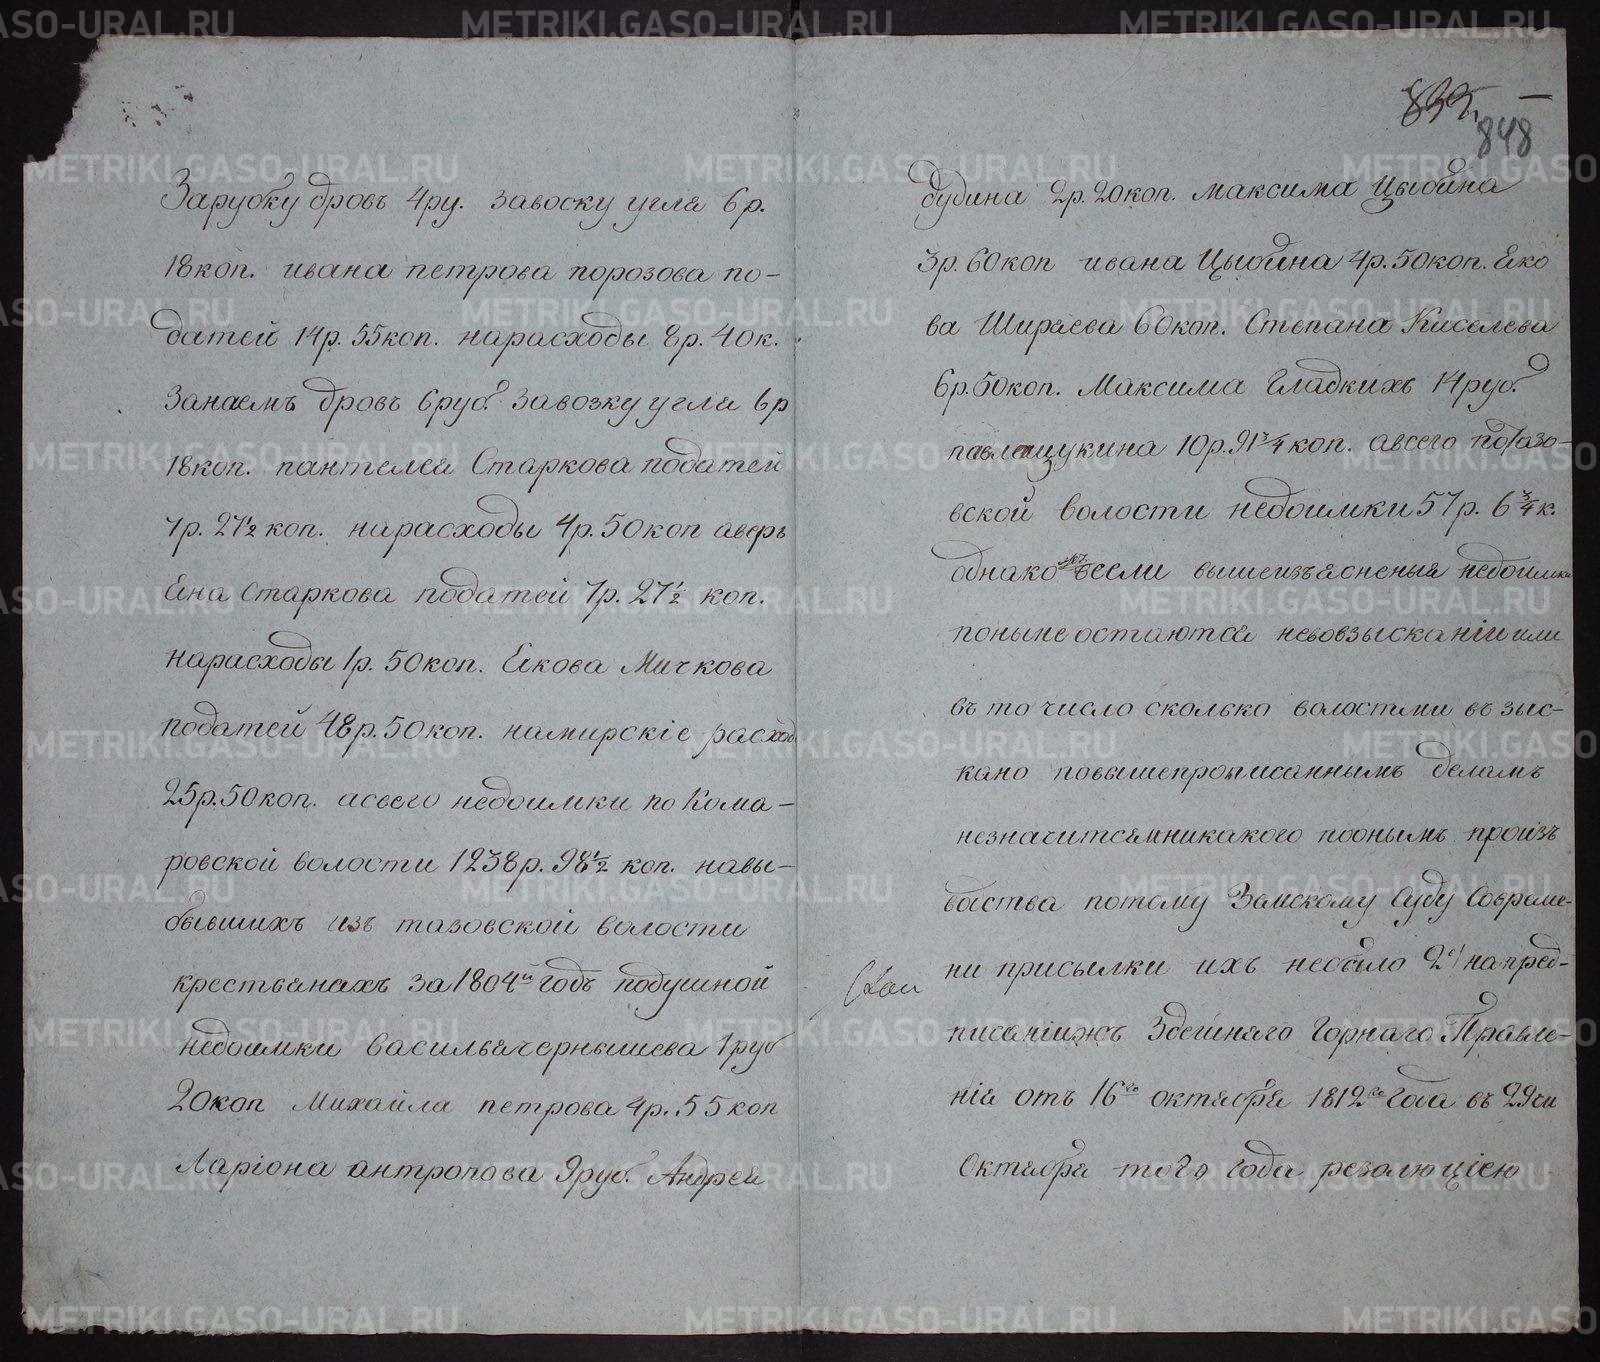 Зарубку дровъ 4ру. завоску угля 6р.
18коп. ивана петрова порозова по-
датей 14р. 55коп. нарасходы 8р. 40к.
Занаемъ дровъ 6руб. завозку угля 6р
18коп. пантелея Старкова податей
7р. 27½ коп. нарасходы 4р. 50коп аверь
яна старкова податей 7р. 27½ коп.
нарасходы 1р. 50коп. Якова Мичкова
податей 48р. 50коп. намирскіе расход
25р. 50коп. авсего недоимки по Кома-
ровской волости 1238р. 98½ коп. навы-
бывшихъ изъ тазовской волости
крестьянахъ за 1804й годъ подушной
недоимки василья чернышева 1руб
20коп Михайла петрова 4р. 55коп
Ларіона антропова 9руб. Андрея
835
848
будина 2р. 20коп. максима Цыбина
3р. 60коп ивана Цыбина 4р. 50коп. Яко
ва Ширяева 60коп. Степана Киселева
6р. 50коп. Максима гладкихъ 14руб.
павла щукина 10р. 91¾ коп. авсего потазо-
вской волости недоимки 57р. 6¾ к.
однако всели вышеизъясненыя недоимки
поныне остаются невовзысканіи или
въ то число сколько волостми въ зыс-
кано повышепрописаннымъ деламъ
незначится никакого пооннымъ произъ
водства потому Земскому Суду Совреме-
ни присылки ихъ небыло 2е) напред-
писаніижъ Здешняго Горнаго Правле-
нія отъ 16го октября 1812го года въ 29 чи
Октября того года резолюціею